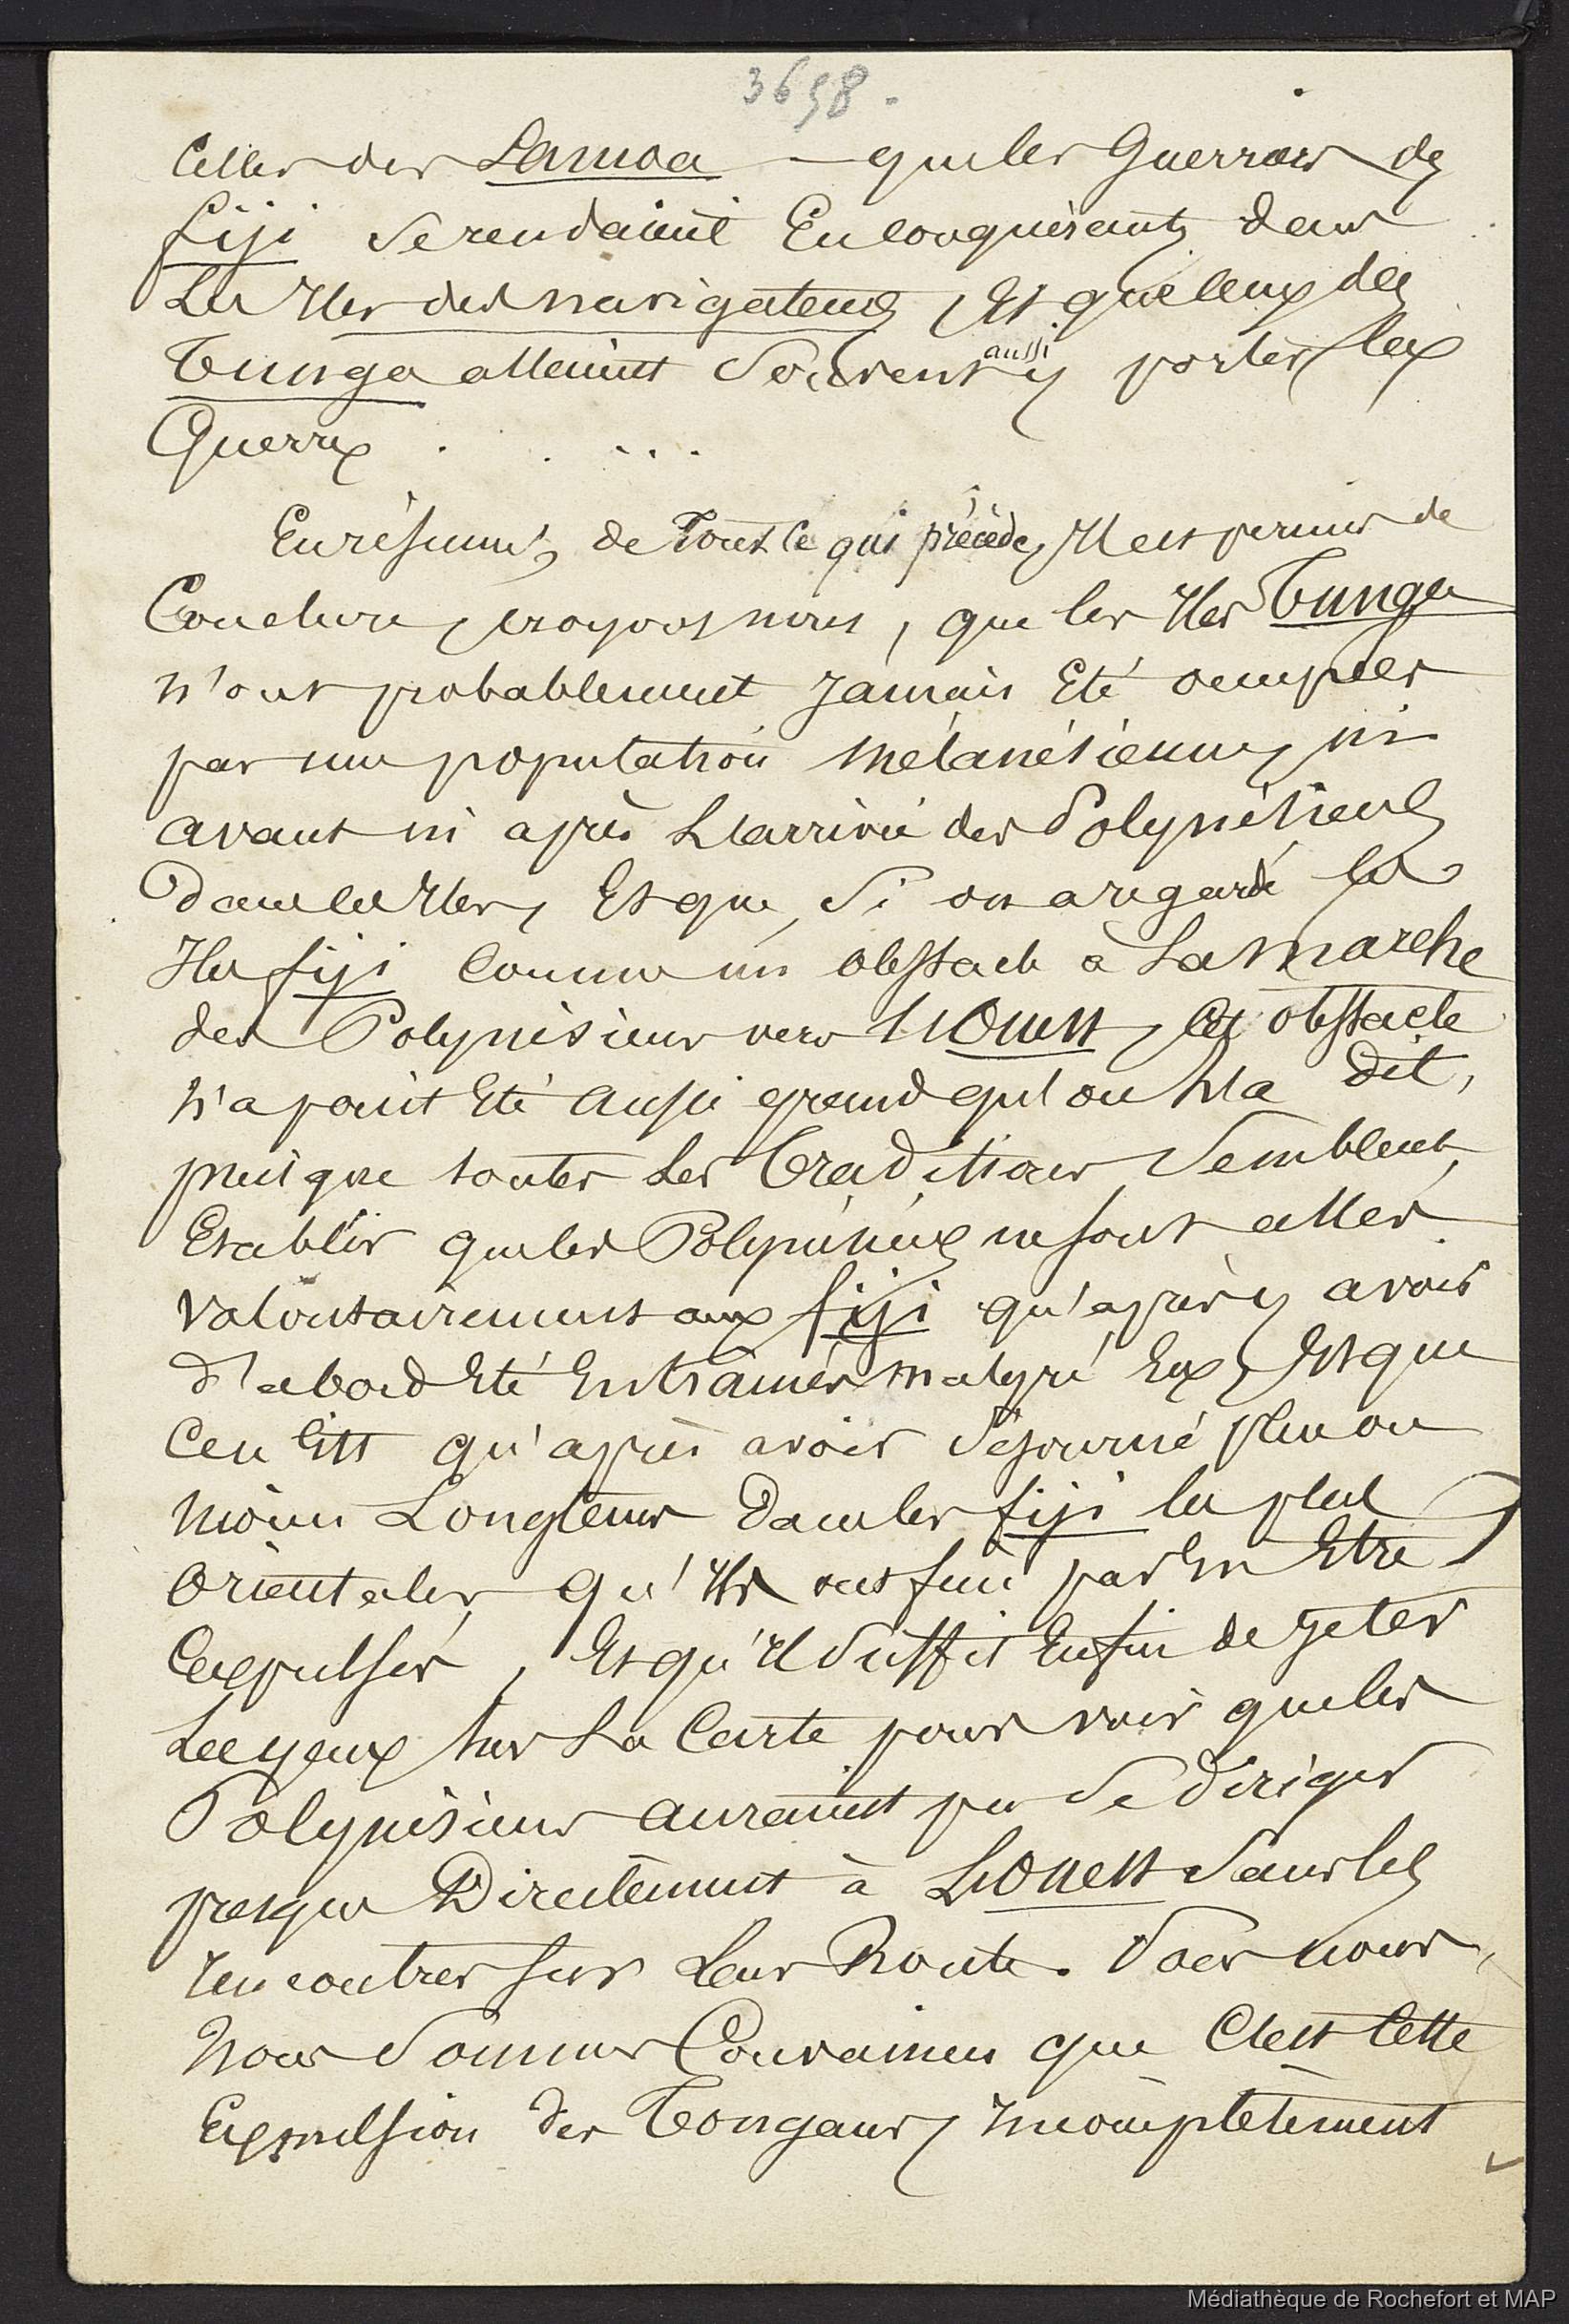 3658.
Celles des Samoa — que les Guerriers de
fiji se rendaient En conquérants dans
Les Iles des navigateurs, Et que ceux des
Tunga allaient souvent aussi y porter la
Guerre . . . . .
En résumé, de tout ce qui précède, Il est permis de
Conclure, croyons nous, que les Iles Tunga
n'ont probablement Jamais Eté occupées
par une population mélanésienne, ni
avant ni après L'arrivée des Polynésiens
dans les Iles, Et que, si on a regardé les
Iles fiji comme un obstacle à La marche
des Polynésiens vers L'Ouest, cet obstacle
n'a point Eté aussi grand qu'on L'a dit,
puisque toutes Les traditions semblent
Etablir que les Polynésiens ne sont allés
volontairement aux fiji qu'après y avoir
d'abord Eté Entrainés malgré Eux, Et que
ce n'Est qu'après avoir séjourné plus ou
moins Longtems dans les fiji les plus
orientales, qu'Ils ont fini par En Etre
Expulsés, Et qu'Il suffit Enfin de Jeter
Les yeux sur La Carte pour voir que les
Polynésiens auraient pu se diriger
presque Directement à L'Ouest sans les
rencontrer sur Leur Route. Pour nous,
nous sommes Convaincu que C'est cette
Expulsion des Tongans, incomplètement
Médiathèque de Rochefort et MAP